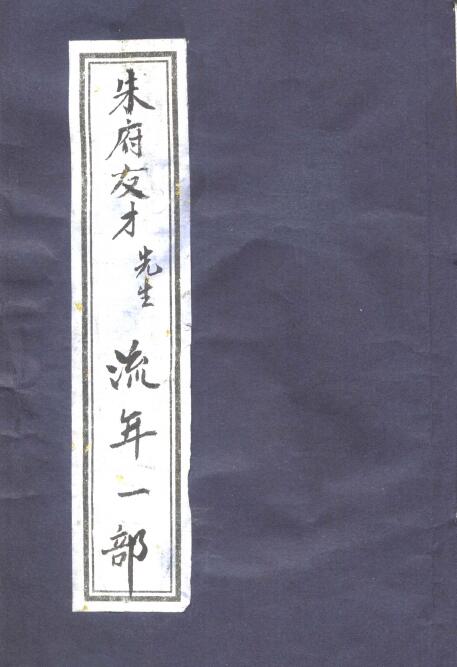 朱府友才先生流年一部